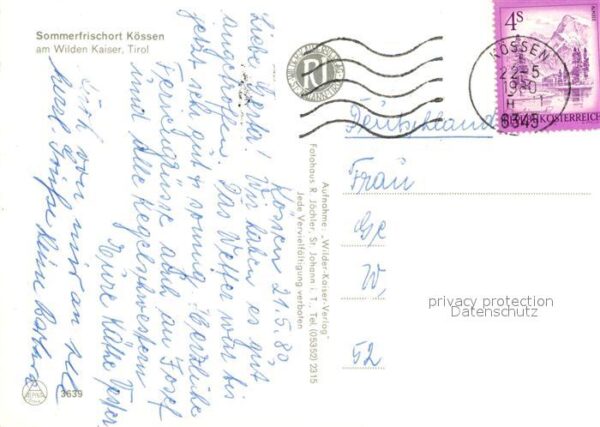 Sommerfrischort Kössen
am Wilden Kaiser, Tirol
Kössen 21.5.80
Liebe Gerta! Wir haben es gut
angetroffen. Das Wetter war bis
jetzt sehr gut + sonnig. Herzliche
Feriengrüße auch an Josef
und Alle Kegelschwestern
Eure Käthe
auch von mir an alle
herzl. Grüße Deine Barbara
3639
Aufnahme: „Wilder-Kaiser-Verlag"
Fotohaus R. Jöchler, St. Johann i. T., Tel. (05352) 2315
Jede Vervielfältigung verboten
RJ
4S
KÖSSEN
22.-5.
1980
H
6345
ÖSTERREICH
Deutschland
Frau
Ge
W
52
privacy protection
Datenschutz